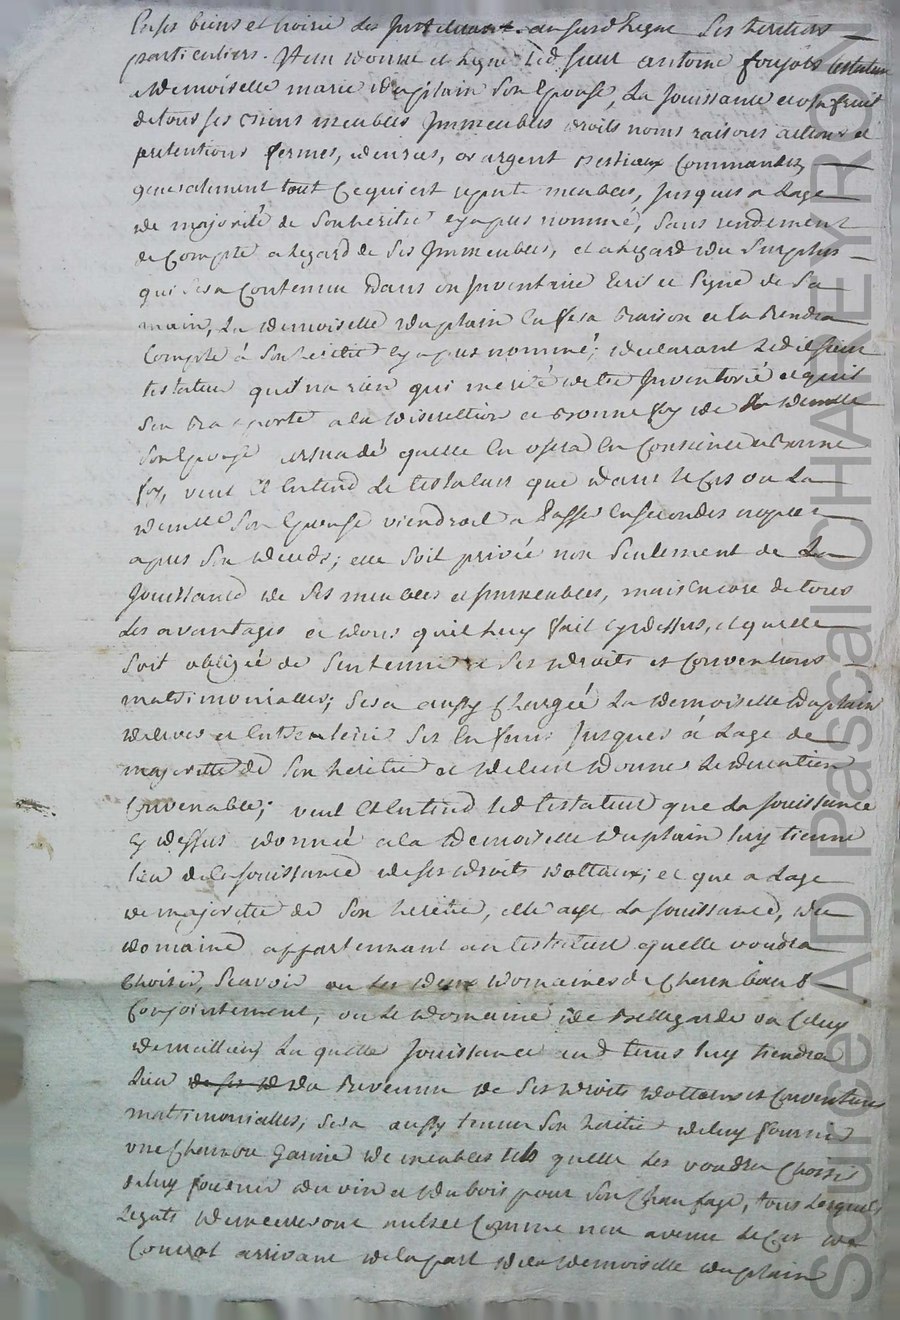 en ses biens et hoirie les institue aujourd'hegue ses heritiers
particuliers. Item donne et legue led sieur antoine foujols testateur
a Demoiselle marie Duplain son Epouse, La Jouissance et usufruit
de tous ses biens meubles Immeubles droits noms raisons actions et
pretentions fermes, denrées, or argent bestiaux Commandes,
generalement tout Cequi est reputé meubles, Jusques a Lage
de majorité de Son heritier cy apres nommé, Sans rendement
de Compte a legard de Ses Immeubles, et a legard du Surplus
qui Sera Contenu dans un Inventaire Ecrit et Signé de Sa
main, La demoiselle Duplain En fera raison et La Rendra
Compte á Son heritier cy apres nommé; declarant Led sieur
testateur qu'il n'a rien qui merite detre Inventorié et quil
Sen raporte a la discrettion et bonne foy de La demlle
Son Epouse persuadé quelle En usera En Conscience et bonne
foy, veut Et Entend Le testateur que dans le Cas ou La
demlle Son Epouse viendroit a passer En Secondes nopces
apres Son deceds; elle Soit privée non Seulement de La
Jouissance de Ses meubles et Immeubles, mais Encore de tous
Les avantages et dons quil Luy fait cy dessus, et quelle
Soit obligée de Sen tenir a Ses droits et Conventions
matrimonialles; Sera aussy Chargée La demoiselle Duplain
delever et Entretenir Ses Enfans Jusques á Lage de
majoritté de Son heritier et de leur donner Leducation
Convenable; veut Et Entend led testateur que La Jouissance
cy dessus donnée a la demoiselle Duplain luy tienne
lieu de la Jouissance de ses droits dottaux; et que a Lage
de majoritté de Son heritier, elle aye La Jouissance, du
domaine appartennant au testateur a quelle voudra
Choisir, Scavoir ou Les deux domaines de
Conjointement, ou Le domaine de Bellegarde ou Celuy
de La quelle Jouissance aud temps luy tiendra
Lieu du Revenu de Ses droits dottaux et Conventions
matrimonialles; Sera aussy tenu Son heritier de luy fournir
une Chambre garnie de meubles tels quelle Les voudra Choisir
de luy fournir du vin et du bois pour Son Chaufage, tous Lesquels
Legats demeureront nuls et Comme non avenu Le Cas de
Convol arrivant de la part de la demoiselle Duplain
Source AD Pascal CHAREYRON